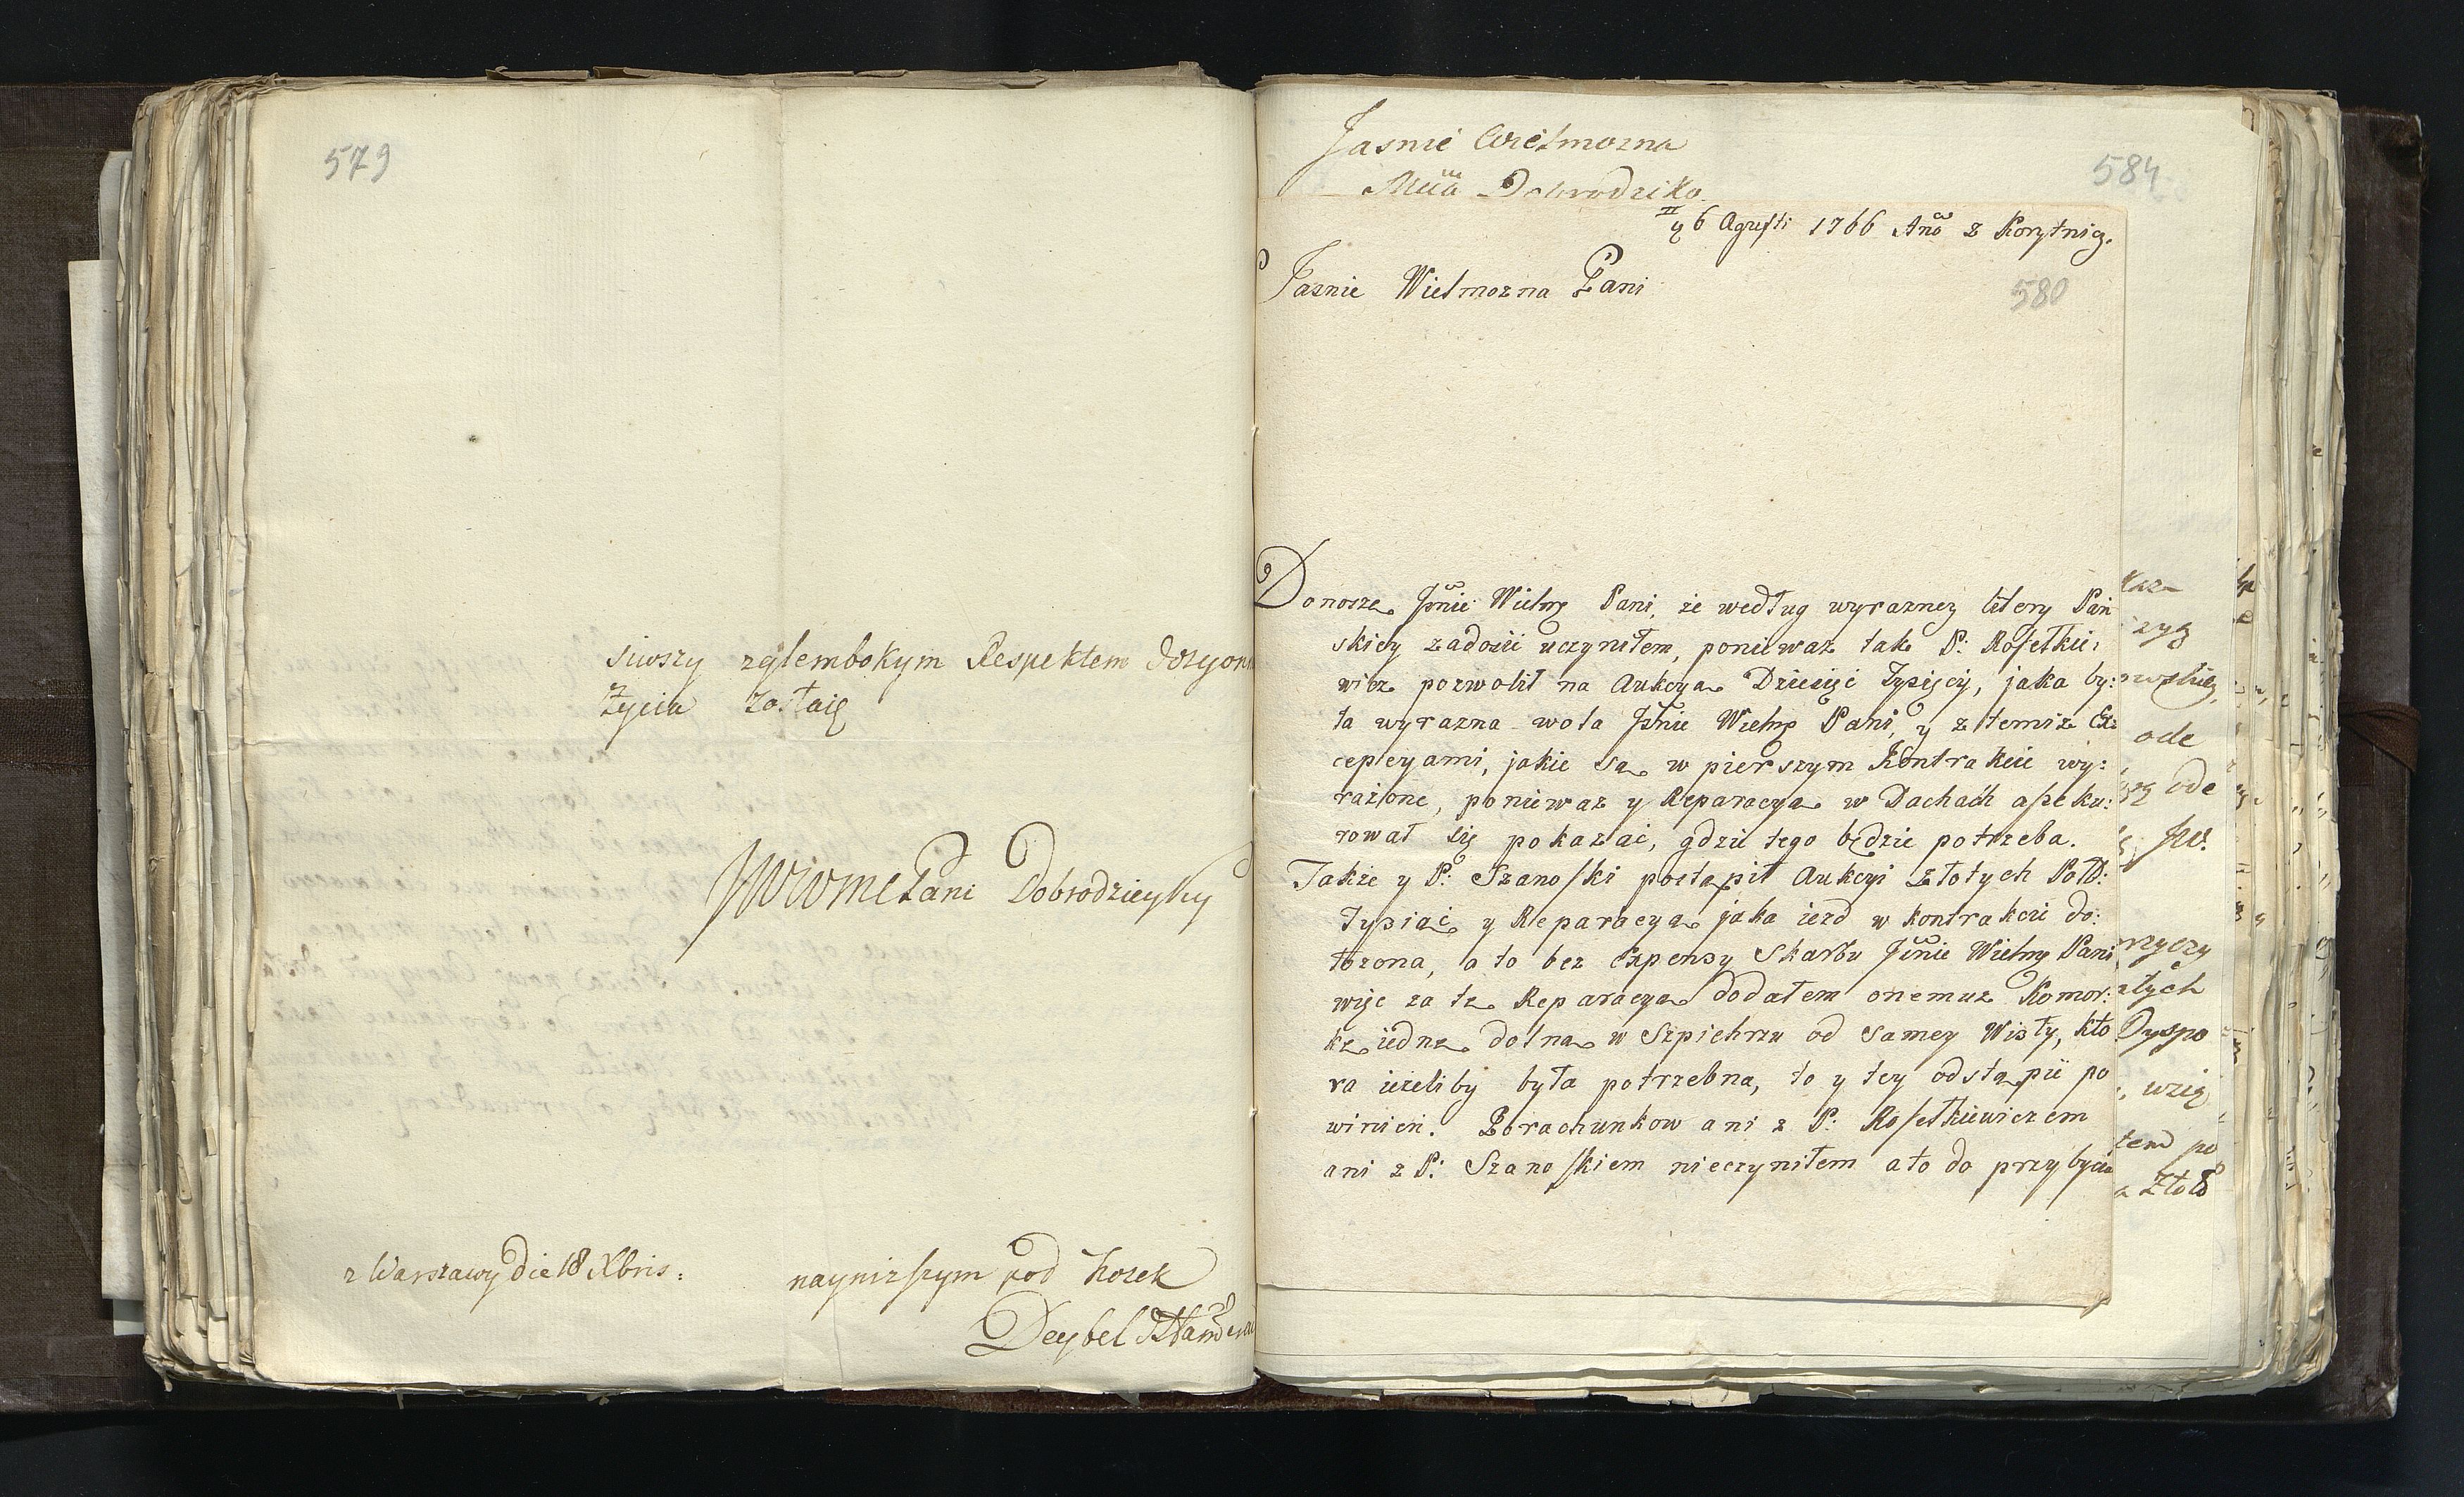 579
siwszy zglembokym Respektem dozgon
Zycia zostaię
JWWMCPani Dobrodzieyky
z Warszawy Die 18 Xbris:
naynizszym pod Nozek
Deybel
Jasnie Wielmozna
Mcia Dobrodziko
584
6 Agusti 1766 Ano z Korytnicy.
Jasnie Wielmozna Pani
580
Donosze Jsnie Wielmę Pani, że według wyrazney litery Pań
skiey zadosić uczyniłem, poniewaz tak P: Rosetkie:
wicz pozwolił na Aukcya Dziesięć Tysięcy, jaka by:
ła wyrazna wola Jsnie Wielmę Pani, y z temiz Ex:
cepcyami, jakie sa w pierszym Kontrakcie wy:
rażone, poniewaz y Reparacya w Dachach aseku:
rował się pokazać, gdzie tego będzie potrzeba.
Także y P: Szanoski postąpił Aukcyi Złotych Pol:
Tysiąc y Reparacya jaka iezd w kontrakcie do:
łozona, a to bez Expensy Skarbu Jsnie Wielmę Pani
więc za te Reparacya dodałem onemuz Komor:
ke iedne dolna w Szpichrzu od samey Wisły, kto
ra ieżeliby była potrzebna, to y tey odstąpić po
winien. Porachunkow ani z P: Rosetkiewiczem
ani z P: Szanoskiem nieczyniłem ato do przybycia
ode
ode
JW.
Dyspo
wzią
tem po